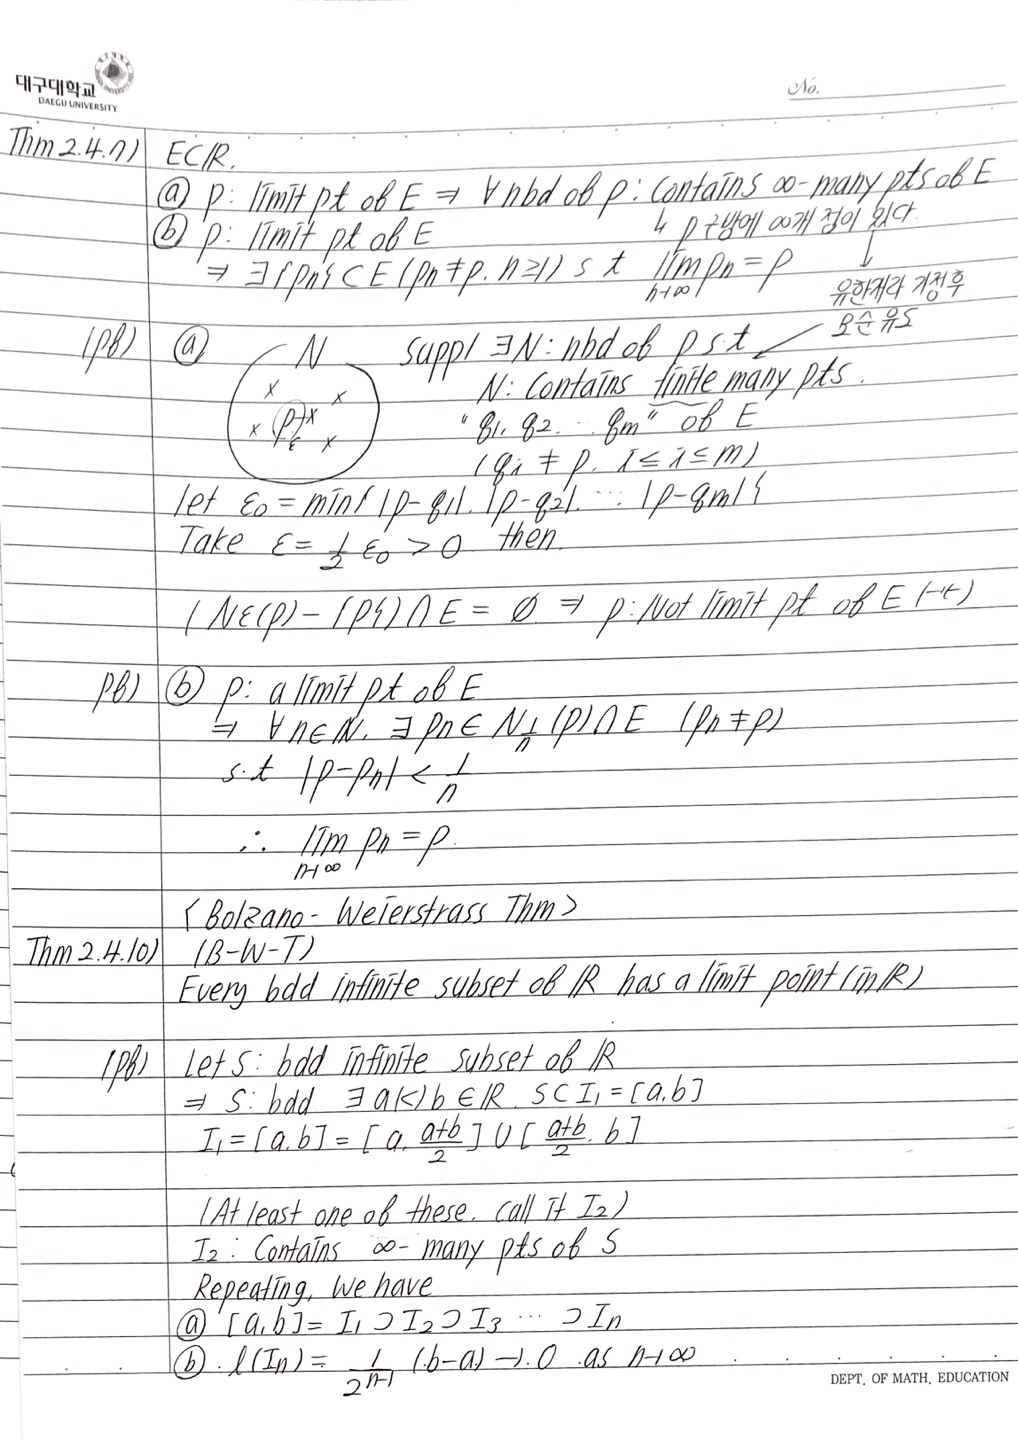 대구대학교
DAEGU UNIVERSITY
No.
Thm 2.4.7) E⊂ℝ.
ⓐ p: limit pt of E ⇒ ∀nbd of p: contains ∞-many pts of E
↳ p 근방에 ∞개 점이 있다.
ⓑ p: limit pt of E
⇒ ∃{pn}⊂E (pn≠p, n≥1) s t lim pn = p
n→∞
유한개라 가정후
모순 유도
(pf) ⓐ N suppl ∃N: nbd of p s.t
N: contains finite many pts.
"q1, q2, … qm" of E
(qi ≠ p, 1≤i≤m)
p
ε
let ε0 = min{|p-q1|, |p-q2|, … |p-qm|}
Take ε = 1/2 ε0 > 0 then
(Nε(p) - {p})∩E = ∅ ⇒ p: Not limit pt of E (→←)
pf) ⓑ p: a limit pt of E
⇒ ∀n∈ℕ, ∃pn∈ N1/n (p)∩E (pn≠p)
s.t |p-pn| < 1/n
∴ lim pn = p.
n→∞
<Bolzano-Weierstrass Thm>
Thm 2.4.10) (B-W-T)
Every bdd infinite subset of ℝ has a limit point (in ℝ)
(pf) Let S: bdd infinite subset of ℝ
⇒ S: bdd ∃a(<)b∈ℝ. S⊂I1=[a,b]
I1=[a,b]=[a, a+b/2]∪[a+b/2, b]
(At least one of these, call it I2)
I2: Contains ∞-many pts of S
Repeating, We have
ⓐ [a,b]= I1⊃I2⊃I3 … ⊃In
ⓑ l(In) = 1/2^{n-1} (b-a) → 0 as n→∞
DEPT. OF MATH. EDUCATION